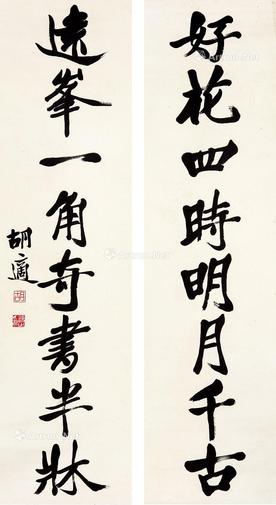 好花四時明月千古
遠峯一角奇書半牀
胡適